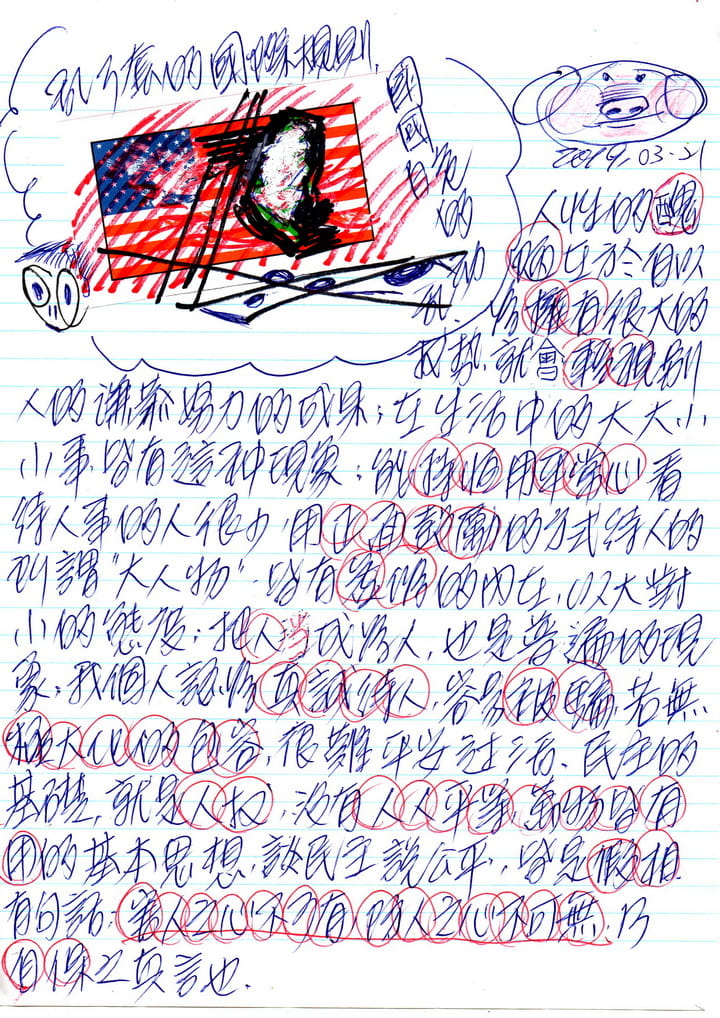 亂了套的國際規則,
國國自家的
2019.03.21
人性的醜
陋在於自以
為擁有很大的
權勢,就會輕視別
人的謙恭努力的成果;在生活中的大大小
小事,皆有這種現象;能持恒用平常心看
待人事的人很少,用正面鼓勵的方式待人的
所謂"大人物",皆有的內在,以大對
小的態度;把人當成為人,也是普遍的現
象;我個人認為真誠待人,容易被騙,若無
極大化的包容,很難平安過活、民主的
基礎,就是人权,沒有人人平等,萬物皆有
用的基本思想,談民主說公平,皆是假相.
有句話:害人之心不可有,防人之心不可無.乃
自保之真言也.